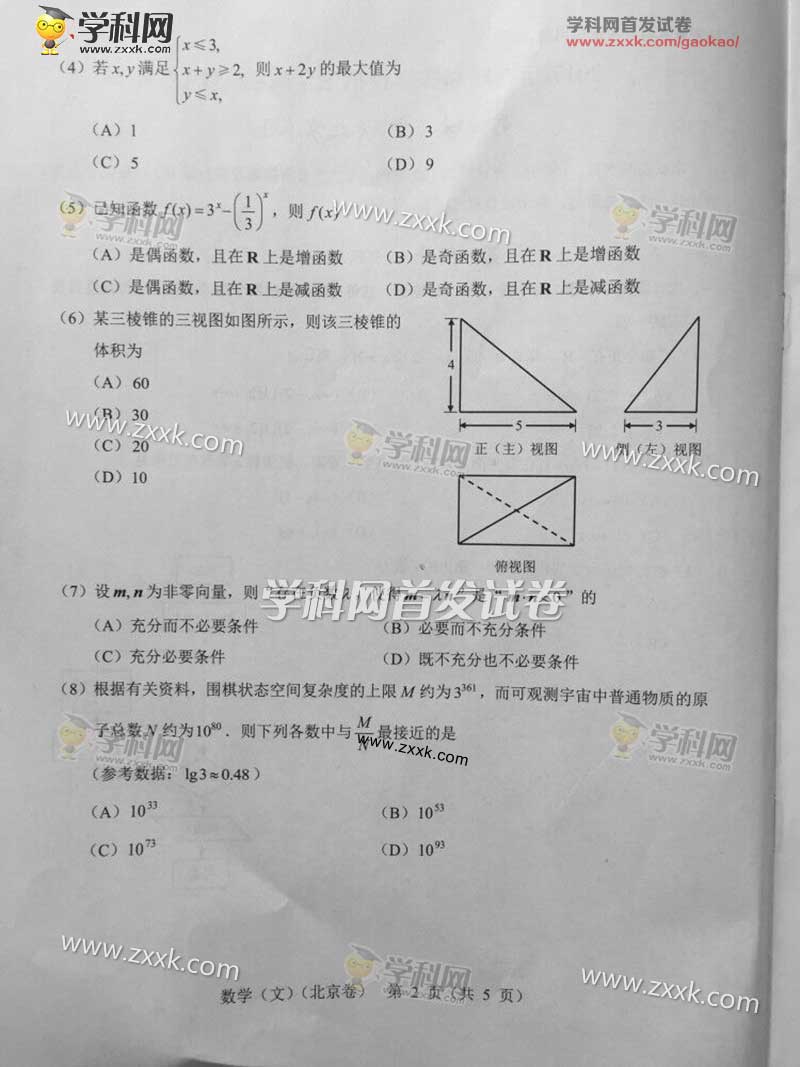 学科网
www.zxxk.com
学科网首发试卷
www.zxxk.com/gaokao/
(4) 若 x, y 满足 { x≤3, x+y≥2, y≤x, 则 x+2y 的最大值为
(A) 1 (B) 3
(C) 5 (D) 9
学科网 学科网
(5) 已知函数 f(x)=3^x-(1/3)^x, 则 f(x)
www.zxxk.com
(A) 是偶函数,且在 R 上是增函数 (B) 是奇函数,且在 R 上是增函数
(C) 是偶函数,且在 R 上是减函数 (D) 是奇函数,且在 R 上是减函数
(6) 某三棱锥的三视图如图所示,则该三棱锥的
体积为
(A) 60
(B) 30
(C) 20
(D) 10
www.zxxk.com
学科网
www.zxxk.com
4
5
3
正(主)视图 侧(左)视图
俯视图
(7) 设 m, n 为非零向量,则
是“m·n<0”的
学科网首发试卷
(A) 充分而不必要条件 (B) 必要而不充分条件
(C) 充分必要条件 (D) 既不充分也不必要条件
(8) 根据有关资料,围棋状态空间复杂度的上限 M 约为 3^361,而可观测宇宙中普通物质的原
子总数 N 约为 10^80.则下列各数中与 M/N 最接近的是
学科网 学科网
www.zxxk.com
(参考数据:lg3≈0.48)
(A) 10^33 (B) 10^53
(C) 10^73 (D) 10^93
www.zxxk.com
学科网
www.zxxk.com
数学(文)(北京卷) 第 2 页(共 5 页)